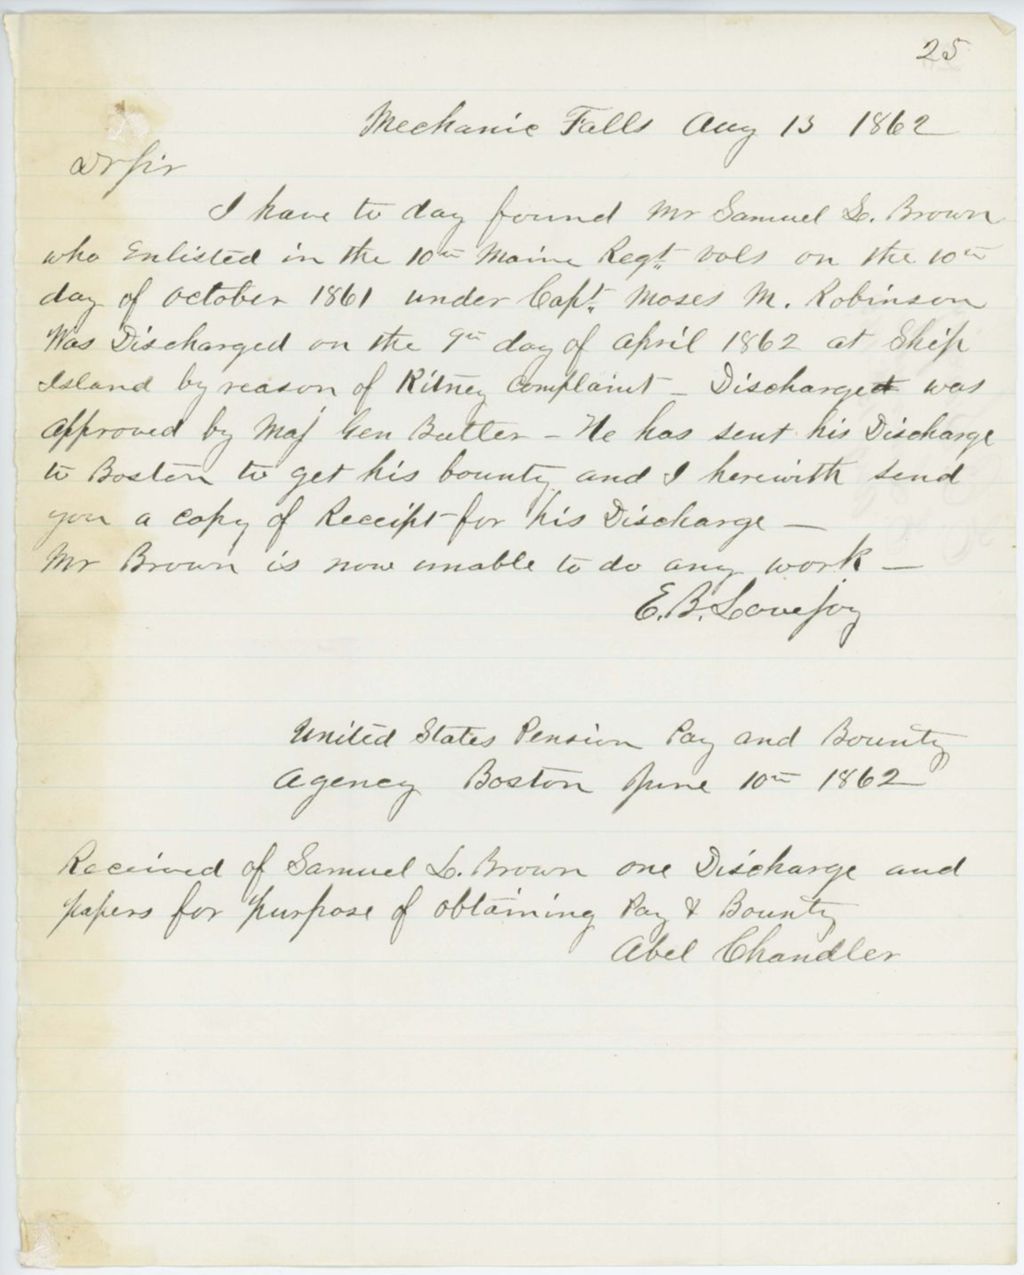 25
Mechanic Falls Aug 13 1862
Dr Sir
I have to day found Mr Samuel L. Brown
who Enlisted in the 10th Maine Regt vols on the 10th
day of October 1861 under Capt. Moses M. Robinson
Was Discharged on the 9th day of April 1862 at Ship
Island by reason of Kitney Complaint - Discharged was
Approved by Maj Gen Butler - He has sent his Discharge
to Boston to get his bounty and I herewith send
you a copy of Receipt for his Discharge -
Mr Brown is now unable to do any work -
E. B. Lovejoy
United States Pension Pay and Bounty
Agency Boston June 10th 1862
Received of Samuel L. Brown one Discharge and
papers for purpose of obtaining Pay & Bounty
Abel Chandler